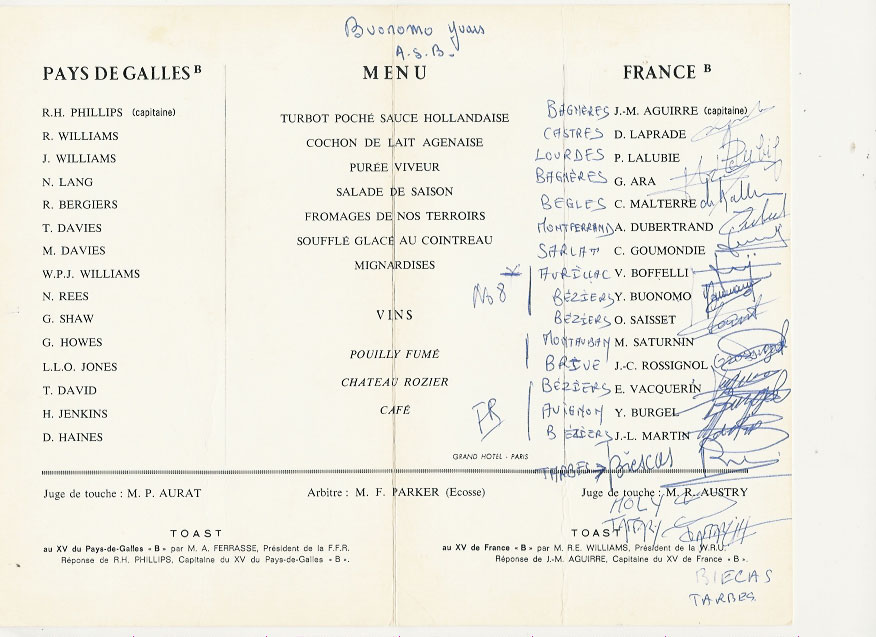 Buonomo Yvan
A.S.B.
PAYS DE GALLES B
R.H. PHILLIPS (capitaine)
R. WILLIAMS
J. WILLIAMS
N. LANG
R. BERGIERS
T. DAVIES
M. DAVIES
W.P.J. WILLIAMS
N. REES
G. SHAW
G. HOWES
L.L.O. JONES
T. DAVID
H. JENKINS
D. HAINES
MENU
TURBOT POCHÉ SAUCE HOLLANDAISE
COCHON DE LAIT AGENAISE
PURÉE VIVEUR
SALADE DE SAISON
FROMAGES DE NOS TERROIRS
SOUFFLÉ GLACÉ AU COINTREAU
MIGNARDISES
VINS
POUILLY FUMÉ
CHATEAU ROZIER
CAFÉ
GRAND HOTEL - PARIS
FRANCE B
BAGNÈRES J.-M. AGUIRRE (capitaine)
CASTRES D. LAPRADE
LOURDES P. LALUBIE
BAGNÈRES G. ARA
BEGLES C. MALTERRE
MONTFERRAND A. DUBERTRAND
SARLAT C. GOUMONDIE
AURILLAC V. BOFFELLI
No 8 BÉZIERS Y. BUONOMO
BÉZIERS O. SAISSET
MONTAUBAN M. SATURNIN
BRIVE J.-C. ROSSIGNOL
BÉZIERS E. VACQUERIN
AVIGNON Y. BURGEL
BÉZIERS J.-L. MARTIN
TARBES Biescas
Juge de touche : M. P. AURAT
Arbitre : M. F. PARKER (Ecosse)
Juge de touche : M. R. AUSTRY
HOLY
TOAST
au XV du Pays-de-Galles « B » par M. A. FERRASSE, Président de la F.F.R.
Réponse de R.H. PHILLIPS, Capitaine du XV du Pays-de-Galles « B ».
TOAST
au XV de France « B » par M. R.E. WILLIAMS, Président de la W.R.U.
Réponse de J.-M. AGUIRRE, Capitaine du XV de France « B ».
BIECAS
TARBES